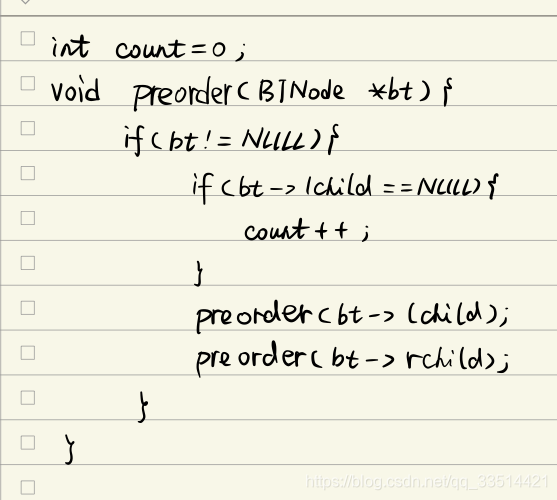 int count=0;
void preorder(BTNode *bt){
if(bt!=NULL){
if(bt->lchild==NULL){
count++;
}
preorder(bt->lchild);
preorder(bt->rchild);
}
}
https://blog.csdn.net/qq_33514421